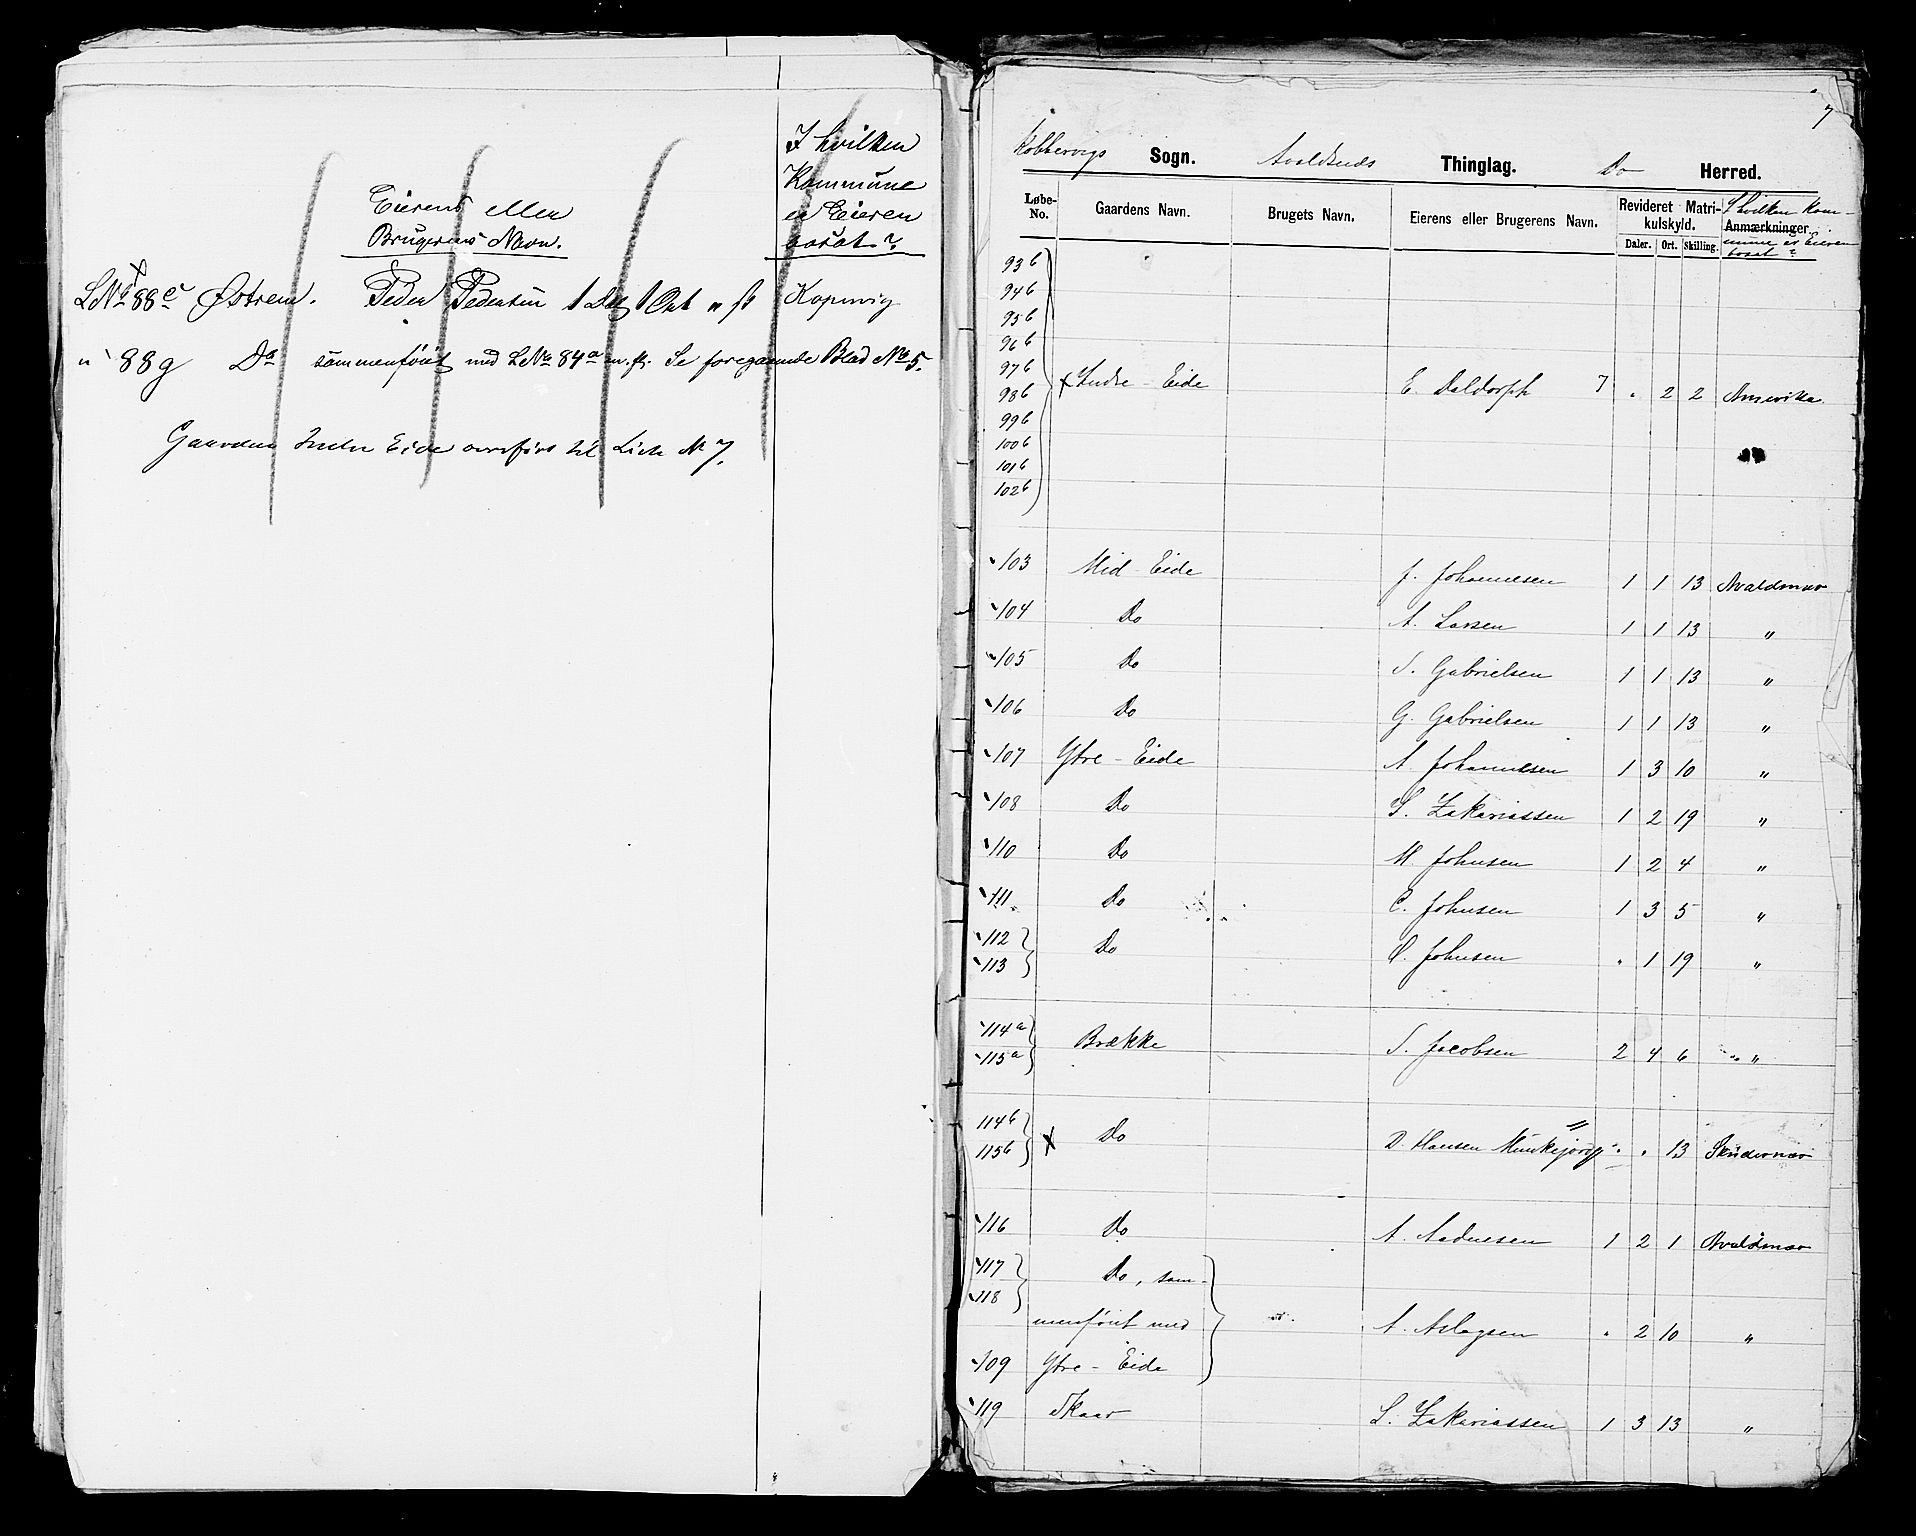 I hvilken
Kommune
er Eieren
bosat?
Eierens eller
Brugerens Navn.
LNo 88e Østrem. Peder Pedersen 1 Dal 1 Ort " ß Kopervig
" 88g Do sammenføiet med LNo 84a m. fl. Se foregaaende Blad No 5.
Gaarden Indre Eide overført til Liste No 7.
7
Kobbervigs Sogn. Avaldsnds Thinglag. Do Herred.
Løbe-No. Gaardens Navn. Brugets Navn. Eierens eller Brugerens Navn. Revideret Matrikulskyld. Anmærkninger
Daler. Ort. Skilling. I hvilken Kommune er Eieren bosat?
93b
94b
95b
96b
97b
98b Indre - Eide E. Daldorph 7 " 2 2 Amerika
99b
100b
101b
102b
103 Mid - Eide J. Johannesen 1 1 13 Avaldsnæs
104 Do A. Larsen 1 1 13 "
105 Do S. Gabrielsen 1 1 13 "
106 Do G. Gabrielsen 1 1 13 "
107 Ytre - Eide A. Johannesen 1 3 10 "
108 Do S. Zakariassen 1 2 19 "
110 Do M. Johnsen 1 2 4 "
111 Do C. Johnsen 1 3 5 "
112
113 Do O. Johnsen " 1 19 "
114a
115a Brække S. Jacobsen 2 4 6 "
114b
115b Do D. Hansen Munkejord " " 13 Skudesnæs
116 Do A. Aadnesen 1 2 1 Avaldsnæs
117 Do, sam-
118
menføiet med A. Aslagsen " 2 10 "
109 Ytre - Eide
119 Skaar S. Zakariassen 1 3 13 "